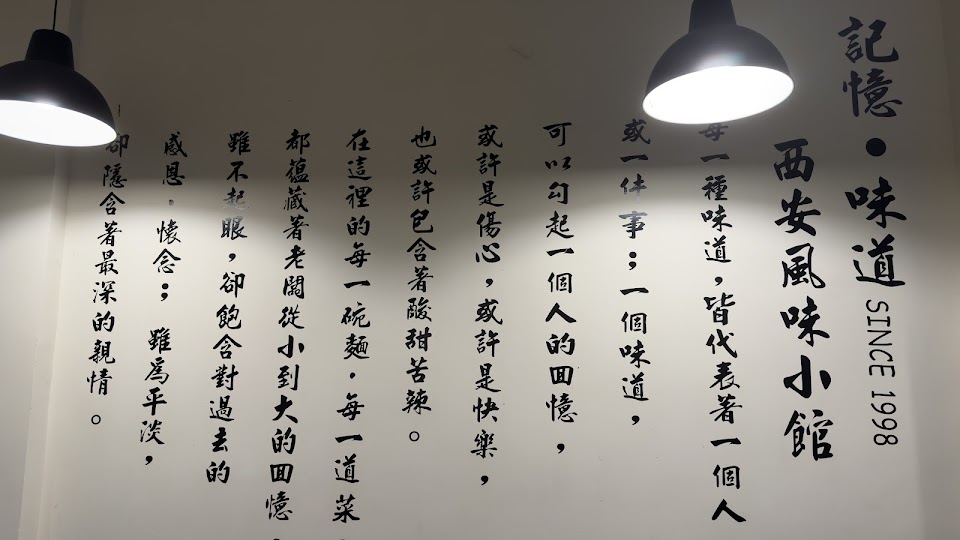 記憶・味道 SINCE 1998
西安風味小館
每一種味道，皆代表著一個人
或一件事；一個味道，
可以勾起一個人的回憶，
或許是傷心，或許是快樂，
也或許包含著酸甜苦辣。
在這裡的每一碗麵・每一道菜
都蘊藏著老闆從小到大的回憶
雖不起眼，卻飽含對過去的
感恩・懷念； 雖為平淡，
卻隱含著最深的親情。